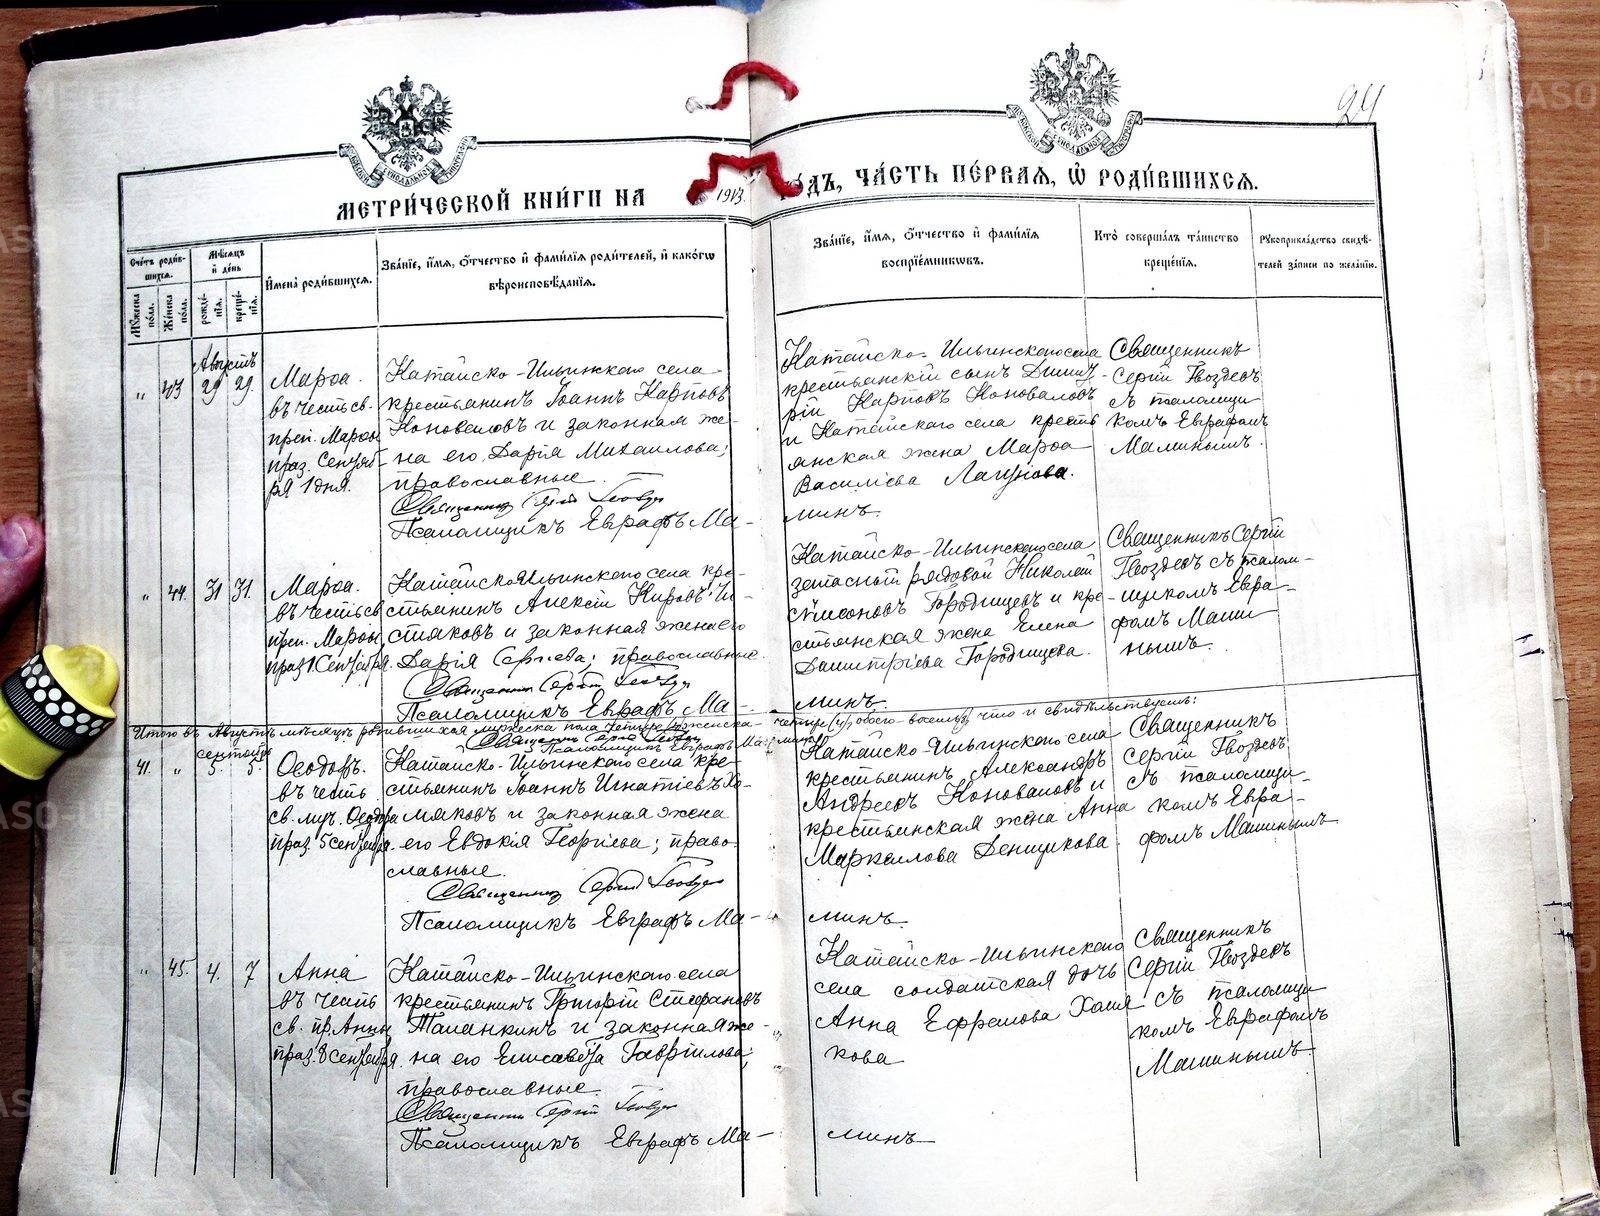 24
МЕТРИ́ЧЕСКОЙ КНИ́ГИ НА 1913 ГО́ДЪ, ЧА́СТЬ ПЕ́РВАЯ, Ѿ РОДИ́ВШИХСЯ.
Сче́тъ роди́вшихся.
Му́жеска по́ла.
Же́нска по́ла.
Мѣ́сяцъ и де́нь
рожде́нїя.
креще́нїя.
Имена̀ роди́вшихся.
Зва́нїе, и́мя, о́тчество и фами́лїя роди́телей, и како́гѡ
вѣроисповѣ́данїя.
Зва́нїе, и́мя, о́тчество и фами́лїя
воспрїе́мникѡвъ.
Кто̀ соверша́лъ та́инство
креще́нїя.
Рукоприкла́дство свидѣ́-
телей за́писи по жела́нїю.
Августъ
" 43 29 29.
Марѳа.
въ честь св.
преп. Марѳы
праз. Сентяб-
ря 1 дня.
Катайско-Ильинскаго села
крестьянинъ Іоаннъ Карповъ
Коноваловъ и законная же-
на его Дарія Михаилова;
православные.
Священникъ Сергій Гвоздевъ
Псаломщикъ Евграфъ Ма-
Катайско-Ильинскаго села
крестьянскій сынъ Димит-
рій Карповъ Коноваловъ
и Катайскаго села кресть
янская жена Марѳа
Василіева Лагунова.
минъ.
Священникъ
Сергій Гвоздевъ
съ псаломщи
комъ Евграфомъ
Маминымъ.
" 44. 31 31.
Марѳа.
въ честь св
преп. Марѳы
праз 1 Сентября.
Катайско-Ильинскаго села кре-
стьянинъ Алексій Кировъ
и законная жена его
Дарія Сергіева; православные.
Священникъ Сергій Гвоздевъ
Псаломщикъ Евграфъ Ма-
Катайско-Ильинскаго села
запасный рядовой Николай
Городищевъ и кре-
стьянская жена Елена
Димитріева Городищева.
минъ.
Священникъ Сергій
Гвоздевъ съ псалом-
щикомъ Евгра-
фомъ Мами
нымъ.
Итого въ Августѣ мѣсяцѣ родившихся мужеска пола четыре (4) женска- четыре (4), обоего-восемь, что и свидѣтельствуемъ:
Священникъ Сергій Гвоздевъ
Псаломщикъ Евграфъ Маминъ
сентябрь
41. " 5. 5.
Ѳеодоръ.
въ честь
св. муч. Ѳеодора
праз. 5 сентября.
Катайско-Ильинскаго села кре-
стьянинъ Іоаннъ Игнатіевъ Хо-
мяковъ и законная жена
его Евдокія Георгіева; право
славные.
Священникъ Сергій Гвоздевъ
Псаломщикъ Евграфъ Ма-
Катайско-Ильинскаго села
крестьянинъ Александръ
Андреевъ Коноваловъ и
крестьянская жена Анна
Маркелова Денщикова.
минъ.
Священникъ
Сергій Гвоздевъ
съ псаломщи-
комъ Евгра-
фомъ Маминымъ
" 45. 4. 7
Анна
въ честь
св. пр. Анны
праз. 8 сентября.
Катайско-Ильинскаго села
крестьянинъ Григорій Стефановъ
Таланкинъ и законная же-
на его Елисавета Гавріилова;
православные.
Священникъ Сергій Гвоздевъ
Псаломщикъ Евграфъ Ма-
Катайско-Ильинскаго
села солдатская дочь
Анна Ефремова Хомя
кова
минъ
Священникъ
Сергій Гвоздевъ
съ псаломщи
комъ Евграфомъ
Маминымъ.